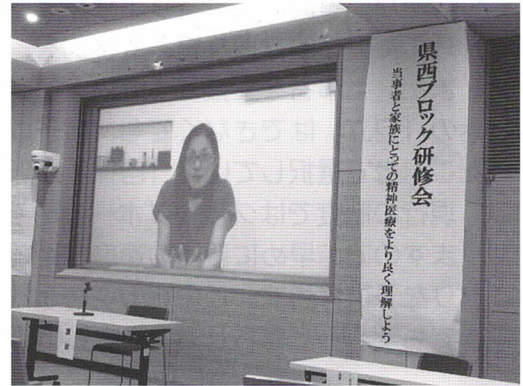 県西ブロック研修会
当事者と家族にとっての精神医療をより良く理解しよう
講師